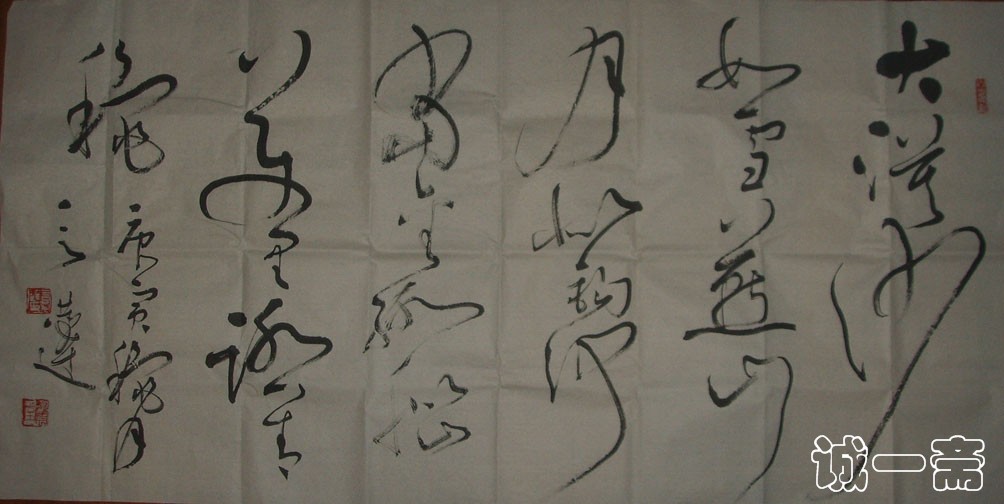 大漠沙
如雪燕山
月似鉤何
當金絡腦
快走踏清
秋
庚寅秋月
诚一斋